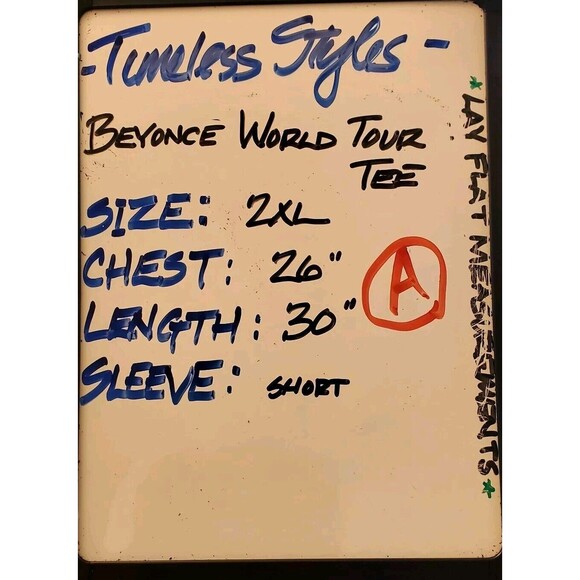 -Timeless Styles-
BEYONCE WORLD TOUR
TEE
SIZE: 2XL
CHEST: 26"
LENGTH: 30"
SLEEVE: SHORT
A
*LAY FLAT MEASUREMENTS*